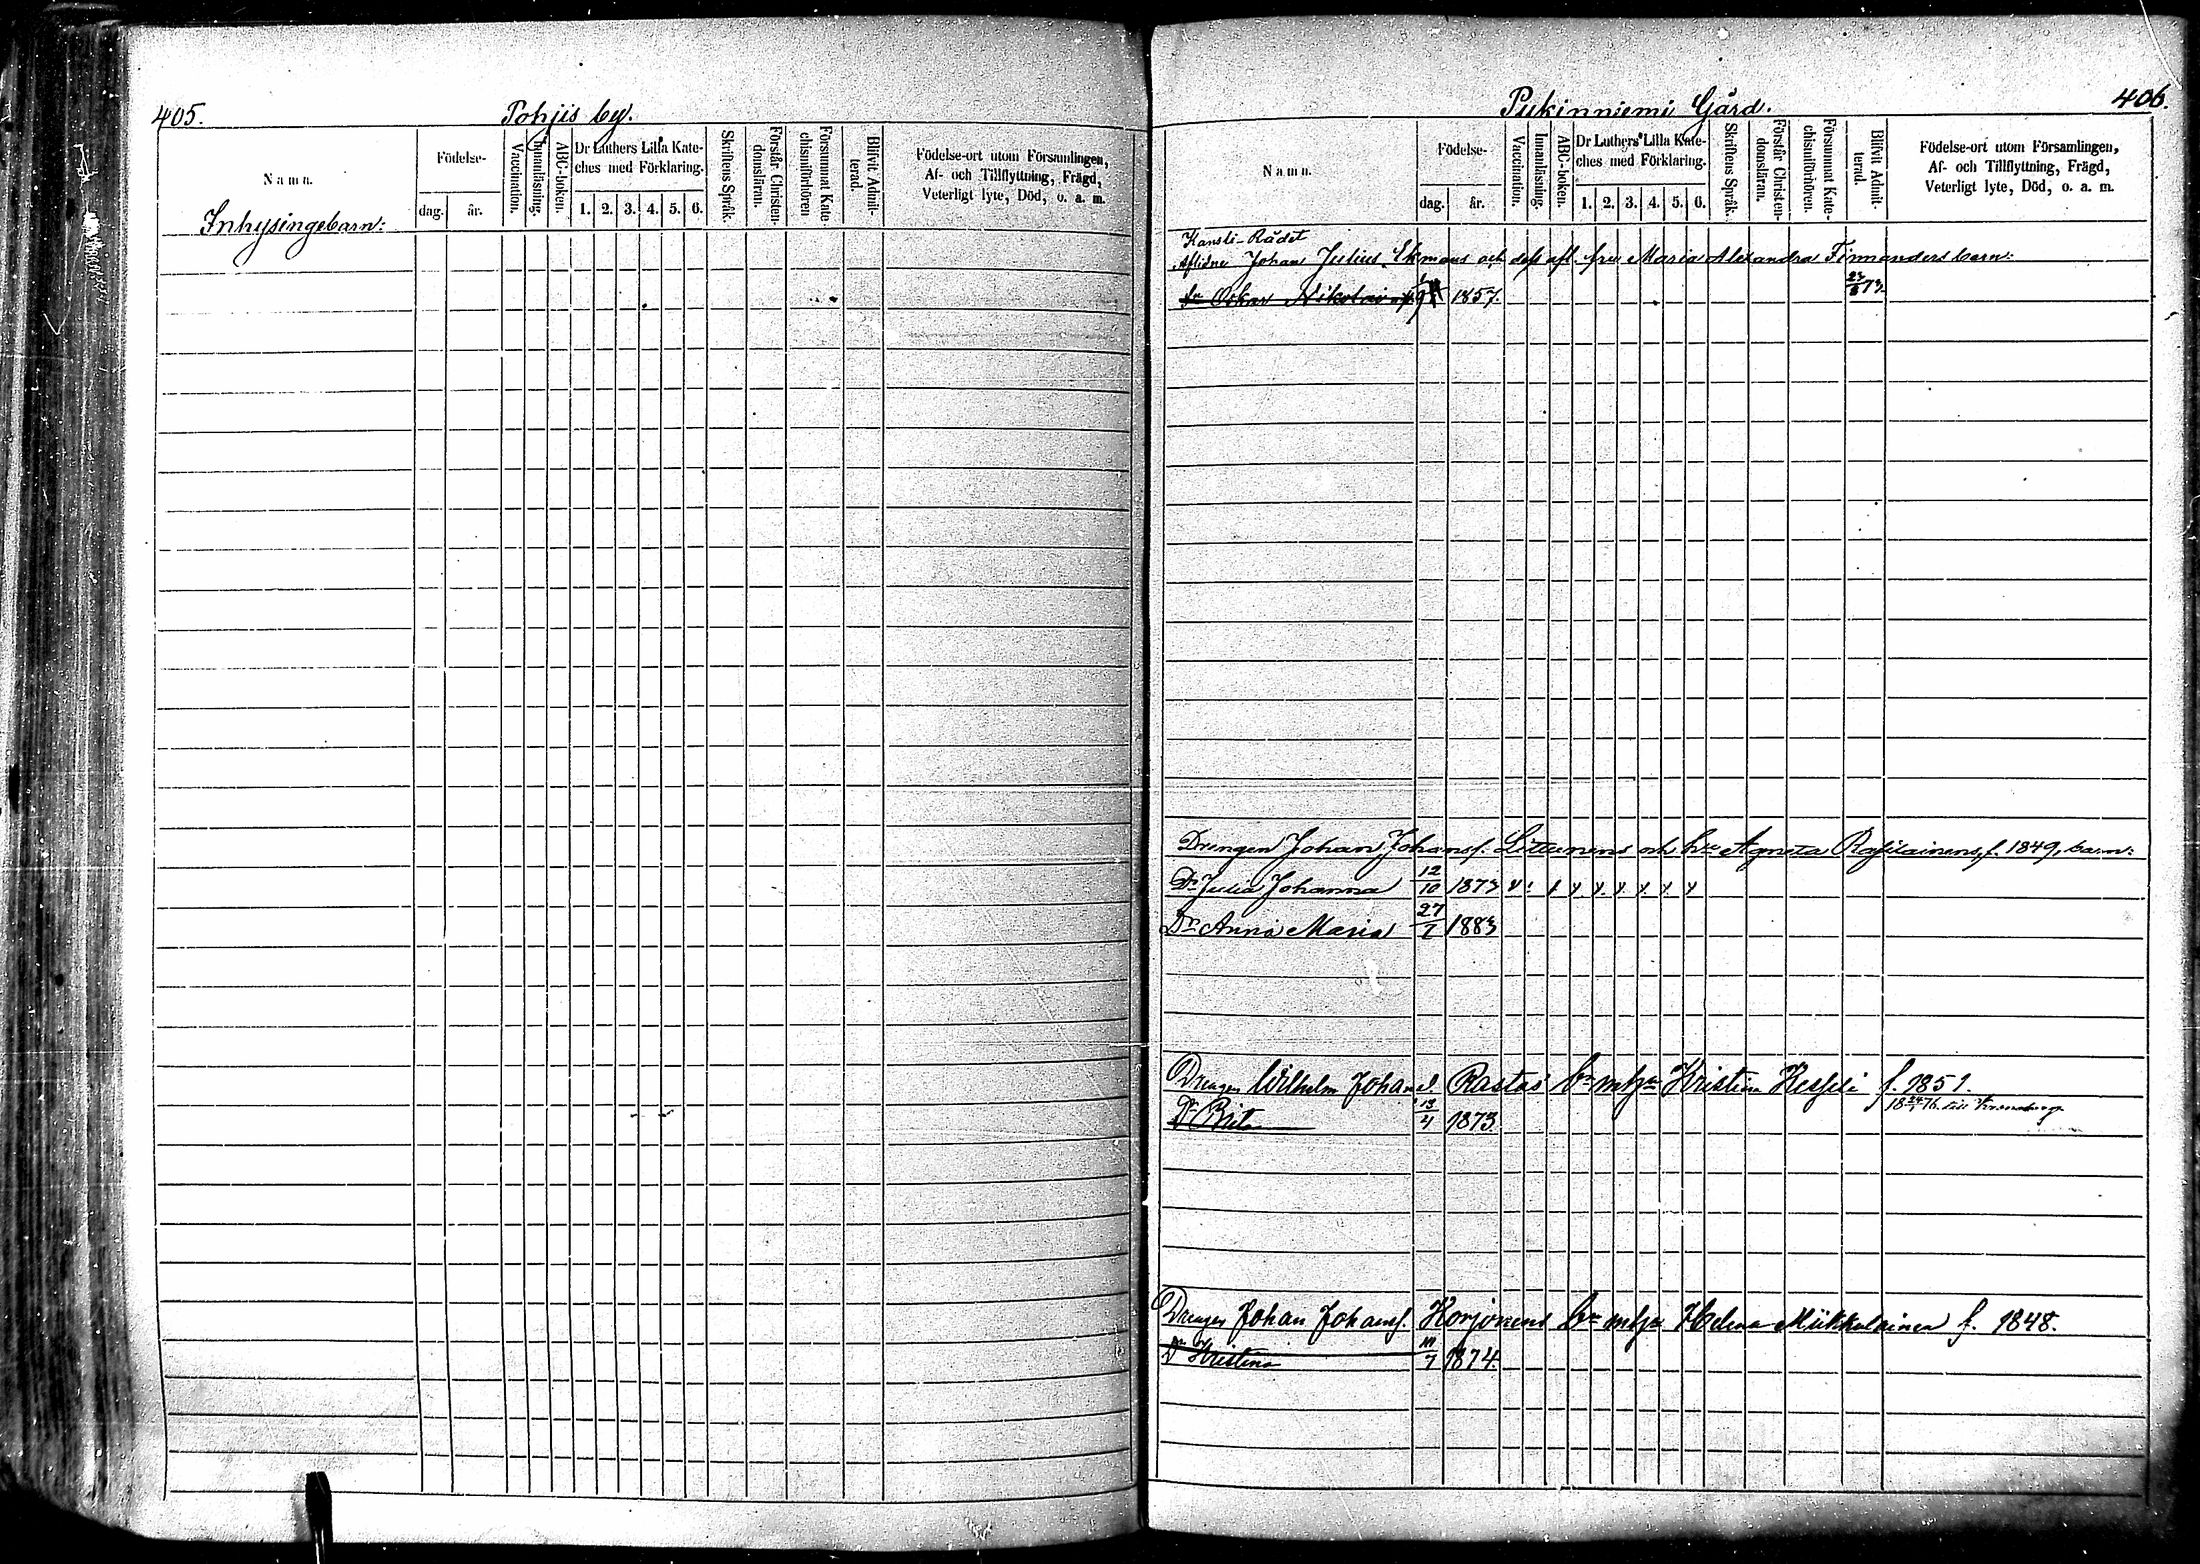 405.
Pohjis by.
Namn.
Födelse-
dag.
år.
Vaccination.
Innanläsning.
ABC-boken.
Dr Luthers Lilla Kate-
ches med Förklaring.
1. 2. 3. 4. 5. 6.
Skriftens Språk.
Förstår Christen-
domsläran.
Försummat Kate
chismiförhören
Blifvit Admit-
terad.
Födelse-ort utom Församlingen,
Af- och Tillflyttning, Frägd,
Veterligt lyte, Död, o. a. m.
Inhysingebarn:
406.
Pukinniemi Gård.
Namn.
Födelse-
dag.
år.
Vaccination.
Innanläsning.
ABC-boken.
Dr Luthers Lilla Kate-
ches med Förklaring.
1. 2. 3. 4. 5. 6.
Skriftens Språk.
Förstår Christen-
domsläran.
Försummat Kate-
chismiförhören.
Blifvit Admit-
terad.
Födelse-ort utom Församlingen,
Af- och Tillflyttning, Frägd,
Veterligt lyte, Död, o. a. m.
Kansli-Rådet
Aflidne Johan Julius Ekmans och dess afl. fru Maria Alexandra Firmanders barn:
Oskar Nikolai 1857.
Drengen Johan Johansf. Littunens och hu Agneta Rassilainens, f. 1849, barn:
Dr Julia Johanna 12/10 1873
Dr Anna Maria 27/7 1883
Drengen Wilhelm Johan Rastas bn m hu Kristina Hessli f. 1851.
Dr Brita 13/4 1873
Drengen Johan Johansf. Korjonens bn m hu Helena Miikkulainen f. 1848.
Dr Kristina 1874.